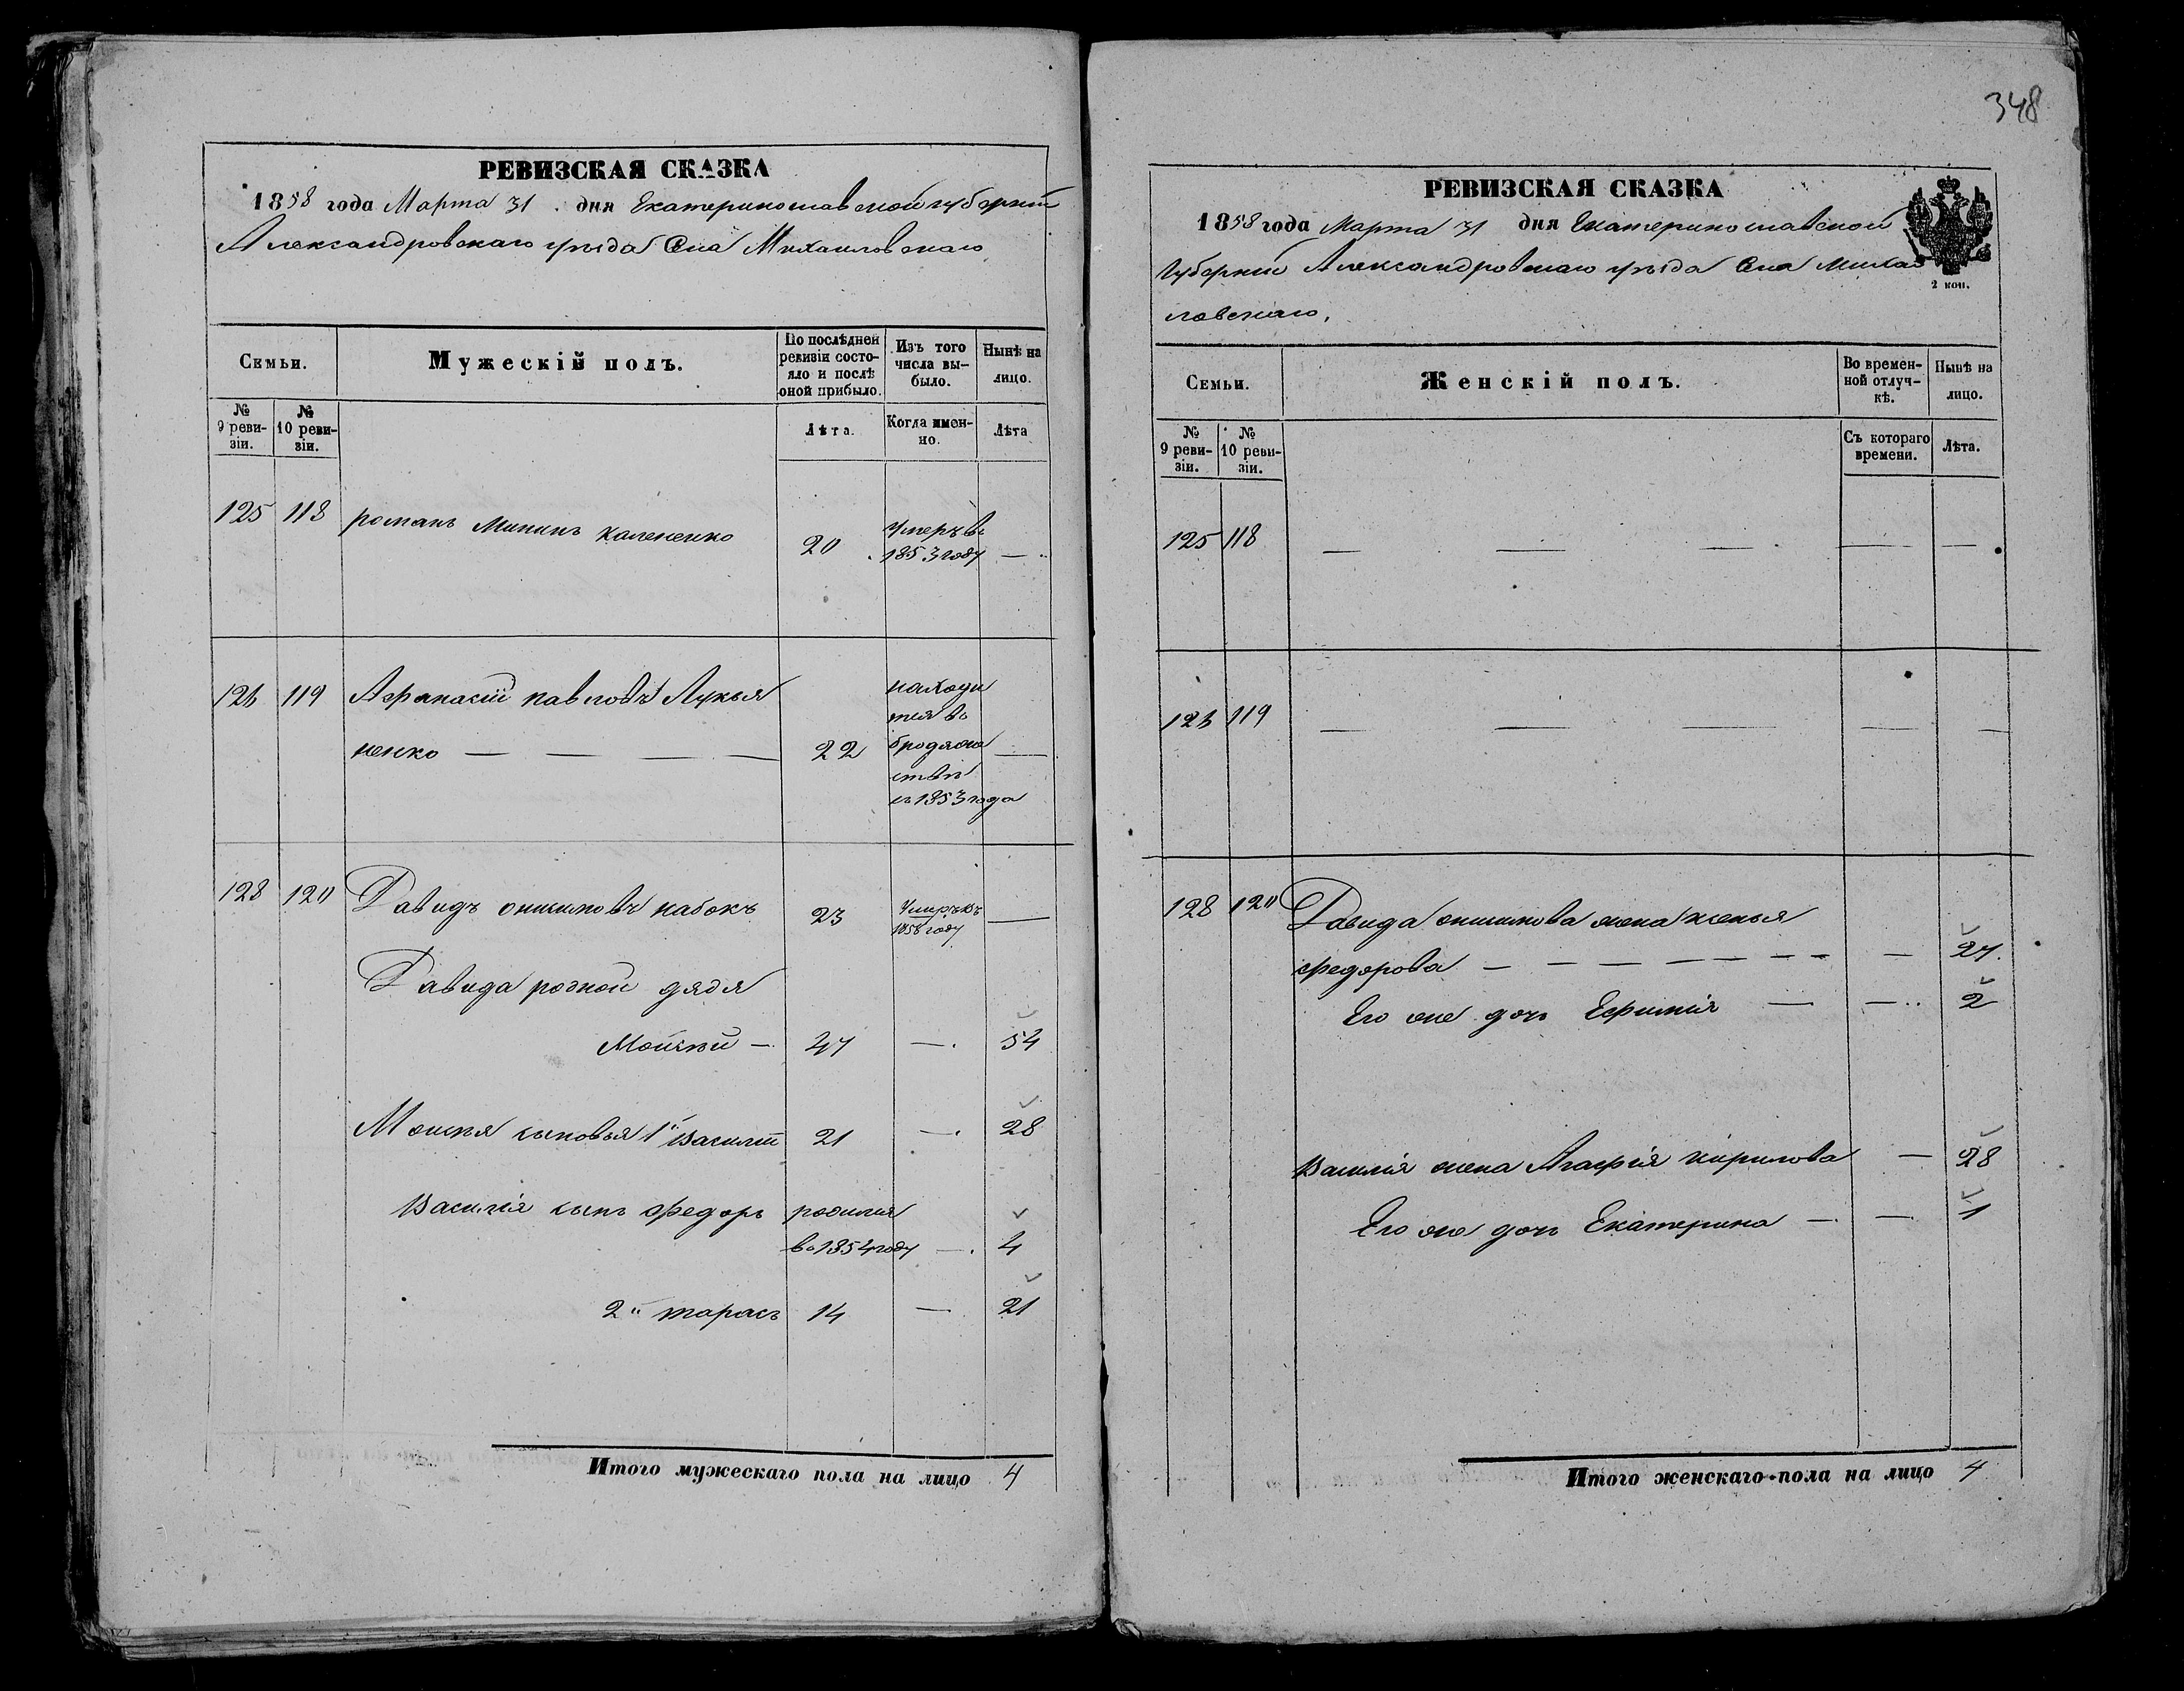 348
РЕВИЗСКАЯ СКАЗКА
1858 года Марта 31 дня Екатеринославской губерніи
Александровскаго уѣзда Села Михаиловскаго
Семьи.
Мужескій полъ.
По послѣдней ревизіи состояло и послѣ оной прибыло.
Изъ того числа выбыло.
Нынѣ на лицо.
№ 9 ревизіи.
№ 10 ревизіи.
Лѣта.
Когда именно.
Лѣта
125 118 романъ Мининъ 20 умеръ въ
1853 году —
126 119 Афанасій павловъ Лукья
ненко — — — — 22 находи
тся въ
бродяже
ствѣ
съ 1853 года —
128 120 Давидъ онисимовъ набокъ 23 умеръ въ
1858 году —
Давида родной дядя
Моисей — 47 — 54
Моисея сыновья 1й Василій 21 — 28
Василія сынъ Федоръ родился
въ 1854 году — 4
2й тарасъ 14 — 21
Итого мужескаго пола на лицо 4
РЕВИЗСКАЯ СКАЗКА
1858 года Марта 31 дня Екатеринославской
губерніи Александровскаго уѣзда Села Михаи
ловскаго.
2 коп.
Семьи.
Женскій полъ.
Во временной отлучкѣ.
Нынѣ на лицо.
№ 9 ревизіи.
№ 10 ревизіи.
Съ котораго времени.
Лѣта.
125 118 — — — — —
126 119 — — — — —
128 120 Давида онисимова жена ксенья
федорова — — — — — — — — 27
Его же дочь Ефимія — — 2
Василія жена Агафія кирилова — 28
Его же дочь Екатерина — — 1
Итого женскаго пола на лицо 4